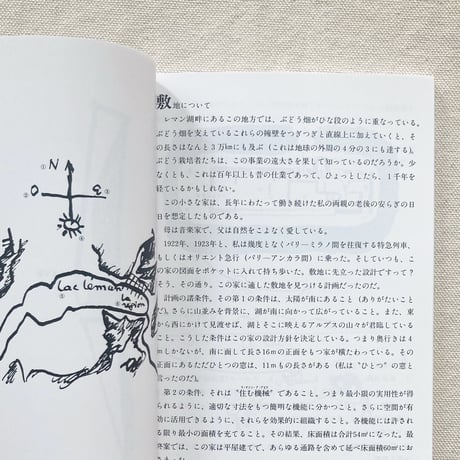 N
O
E
Lac Leman
La
région
敷地について
レマン湖畔にあるこの地方では、ぶどう畑がひな段のように重なっている。
ぶどう畑を支えているこれらの擁壁をつぎつぎと直線上に加えていくと、そ
の長さはなんと3万kmにも及ぶ(これは地球の外周の4分の3にも達する)。
ぶどう栽培者たちは、この事業の遠大さを果して知っているのだろうか。少
なくとも、これは百年以上も昔の仕業であって、ひょっとしたら、1千年を
経ているかもしれない。
この小さな家は、長年にわたって働き続けた私の両親の老後の安らぎの日
を想定したものである。
母は音楽家で、父は自然をこよなく愛している。
1922年、1923年と、私は幾度となくパリ―ミラノ間を往復する特急列車、
もしくはオリエント急行(パリ―アンカラ間)に乗った。そしていつも、こ
の家の図面をポケットに入れて持ち歩いた。敷地に先立った設計ですって?
そう、その通り。この家に適した敷地を見つける計画だったのだ。
計画の諸条件。その第1の条件は、太陽が南にあること(ありがたいこと
だ)。さらに山並みを背景に、湖が南に向かって広がっていること。また、東
から西にかけて見渡せば、湖とそこに映えるアルプスの山々が君臨している
こと。こうした条件はこの家の設計方針を決定している。つまり奥行きは4
mしかないが、南に面して長さ16mの正面をもつ家が横たわっている。その
正面にあるただひとつの窓は、11mもの長さがある(私は"ひとつ"の窓
と言ったのだ)。
第2の条件、それは"住む機械"であること。つまり最小限の実用性が得
られるように、適切な寸法をもつ簡明な機能に分かつこと。さらに空間が有
効に活用できるように、それらを効果的に組織すること。各機能には許され
る限り最小の面積を充てること。その結果、床面積は合計54㎡になった。最
終案では、この家は平屋建てで、あらゆる通路を含めて延べ床面積60㎡にお